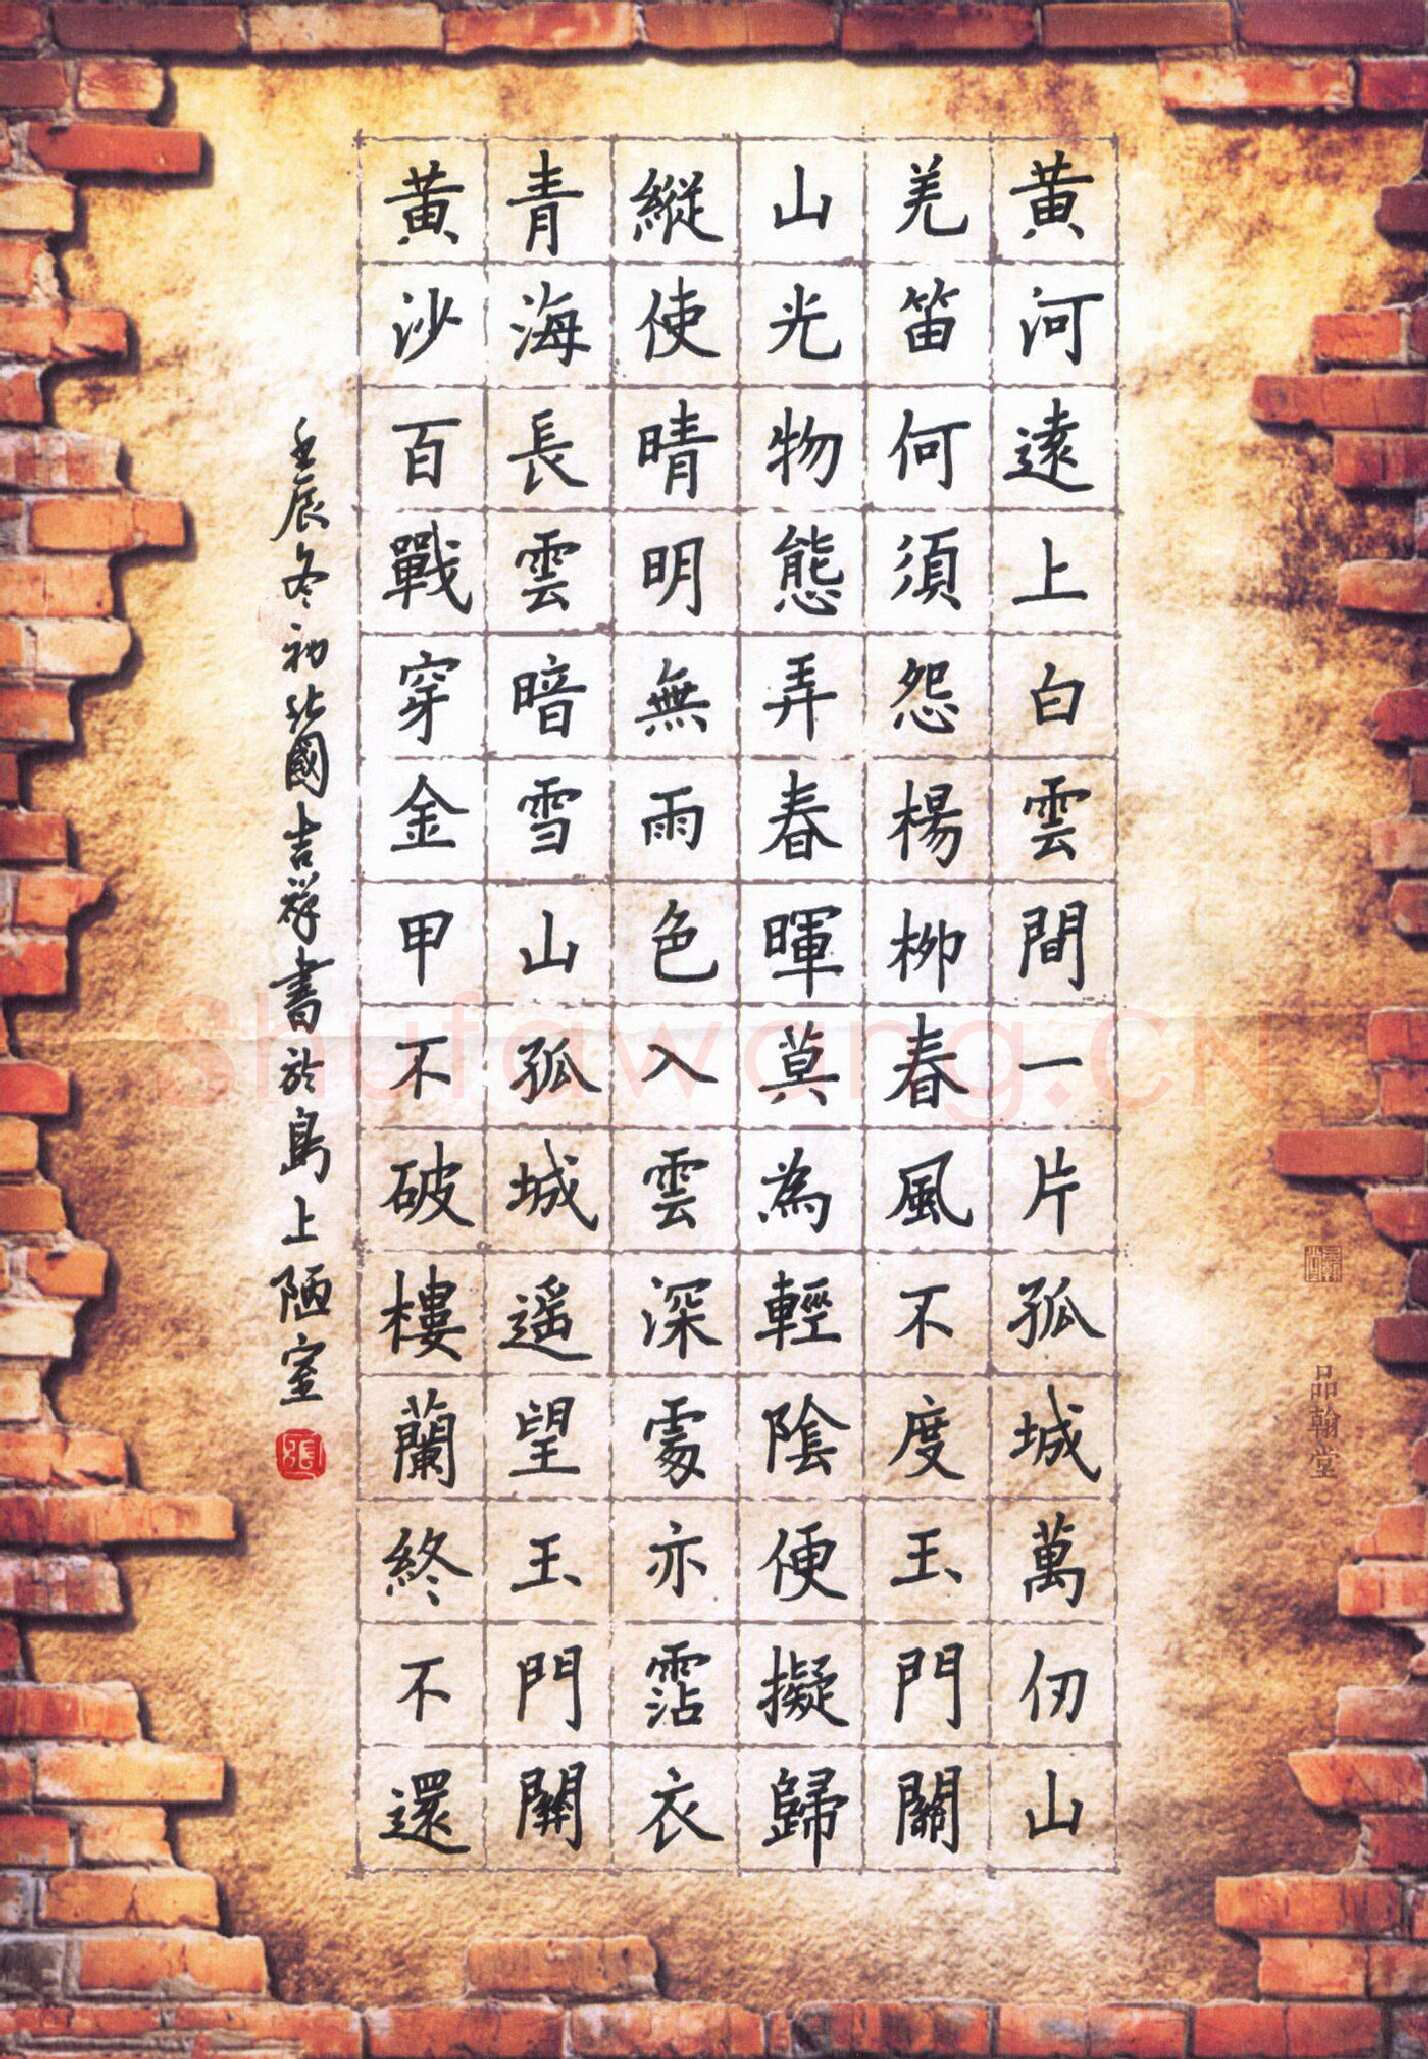 黃河遠上白雲間一片孤城萬仞山
羌笛何須怨楊柳春風不度玉門關
山光物態弄春暉莫為輕陰便擬歸
縱使晴明無雨色入雲深處亦霑衣
青海長雲暗雪山孤城遥望玉門關
黃沙百戰穿金甲不破樓蘭終不還
壬辰冬初北國吉祥書於島上陋室
張
品翰堂
Shufawang.CN